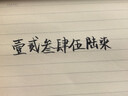 壹贰叁肆伍陆柒